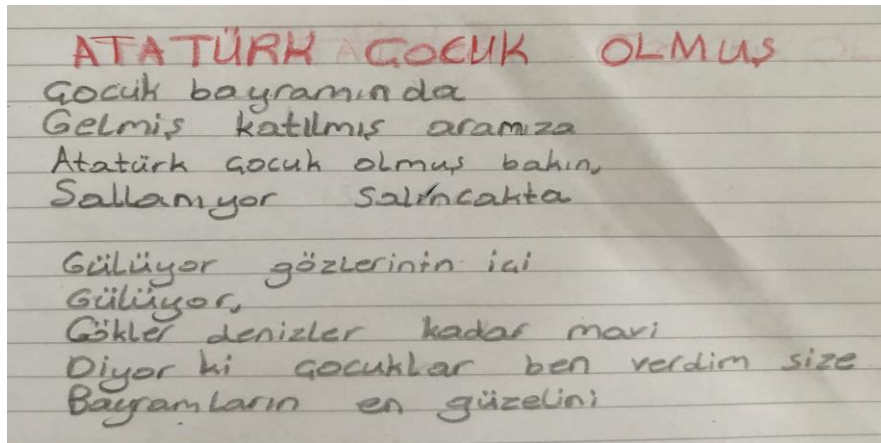 ATATÜRK ÇOCUK OLMUŞ
Çocuk bayramında
Gelmiş katılmış aramıza
Atatürk çocuk olmuş bakın,
Sallanıyor salıncakta
Gülüyor gözlerinin içi
Gülüyor,
Gökler denizler kadar mavi
Diyor ki çocuklar ben verdim size
Bayramların en güzelini